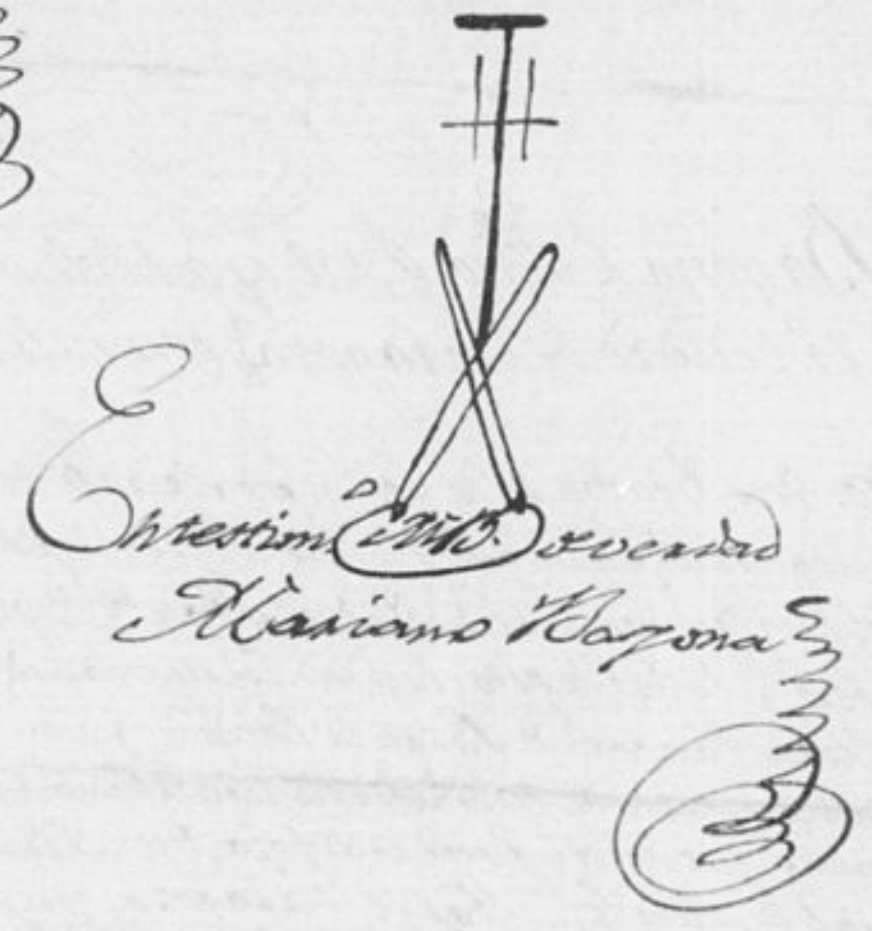 En testim.º M.B. de verdad
Mariano Bayona